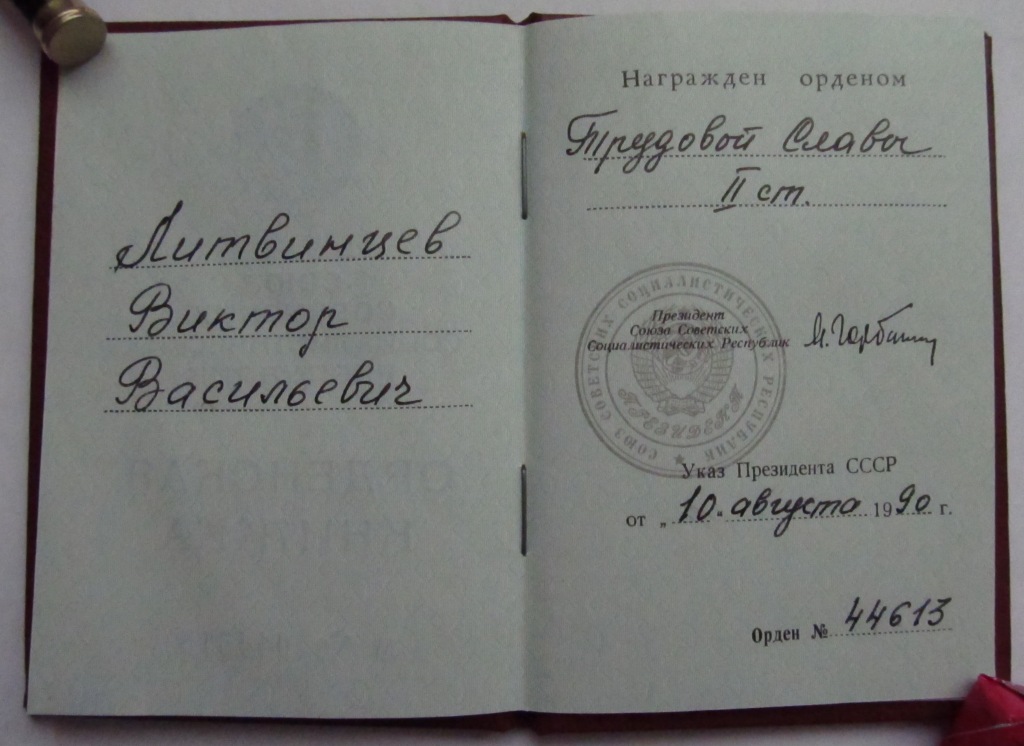 Литвинцев
Виктор
Васильевич
Награжден орденом
Трудовой Славы
II ст.
СОЮЗ СОВЕТСКИХ СОЦИАЛИСТИЧЕСКИХ РЕСПУБЛИК
Президент
Союза Советских
Социалистических Республик М. Горбачев
ПРЕЗИДЕНТ
Указ Президента СССР
от „10" августа 1990 г.
Орден № 44613